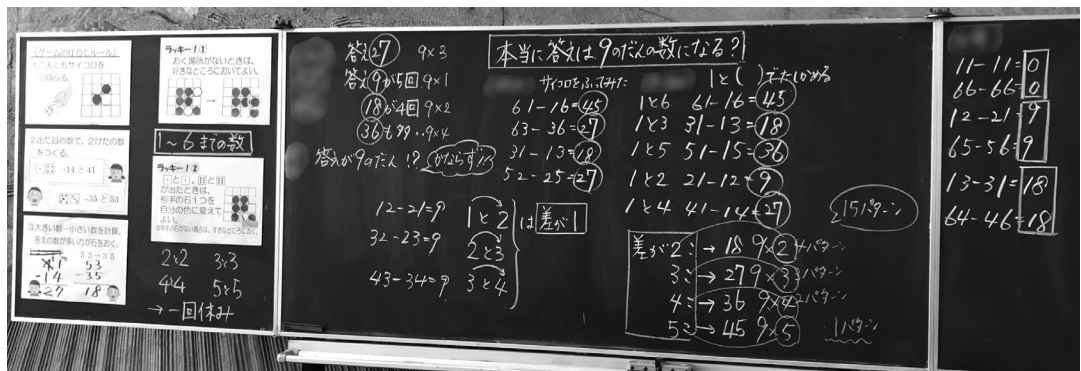 [ゲームの仕方とルール]
①二人ともサイコロを
2回ふる。
2出た目の数で、2けたの数
をつくる。
→14と41
→35と53
③大きい数－小さい数を計算。
答えの数が多い方が石をおく。
41
-14
27
53-35
53
-35
18
ラッキー!①
おく場所がないときは、
好きなところにおいてよい。
→
1~6までの数
ラッキー!②
が出たときは、
相手の石1つを
自分の色に変えて
よい。
※相手の石がない場合は、すきなところにおく。
2と2 3と3
4と4 5と5
→一回休み
答え27 9×3
答え9が5回 9×1
18が4回 9×2
36も? 9×4
答えが9のだん!? かならず!!
12-21=9 1と2
32-23=9 2と3
43-34=9 3と4
は差が1
本当に答えは9のだんの数になる?
サイコロをふってみた
61-16=45
63-36=27
31-13=18
52-25=27
1と( )でたしかめる
1と6 61-16=45
1と3 31-13=18
1と5 51-15=36
1と2 21-12=9
1と4 41-14=27
15パターン
差が2:→18 9×2 4パターン
3:→27 9×3 3パターン
4:→36 9×4 2パターン
5:→45 9×5 1パターン
11-11=0
66-66=0
12-21=9
65-56=9
13-31=18
64-46=18